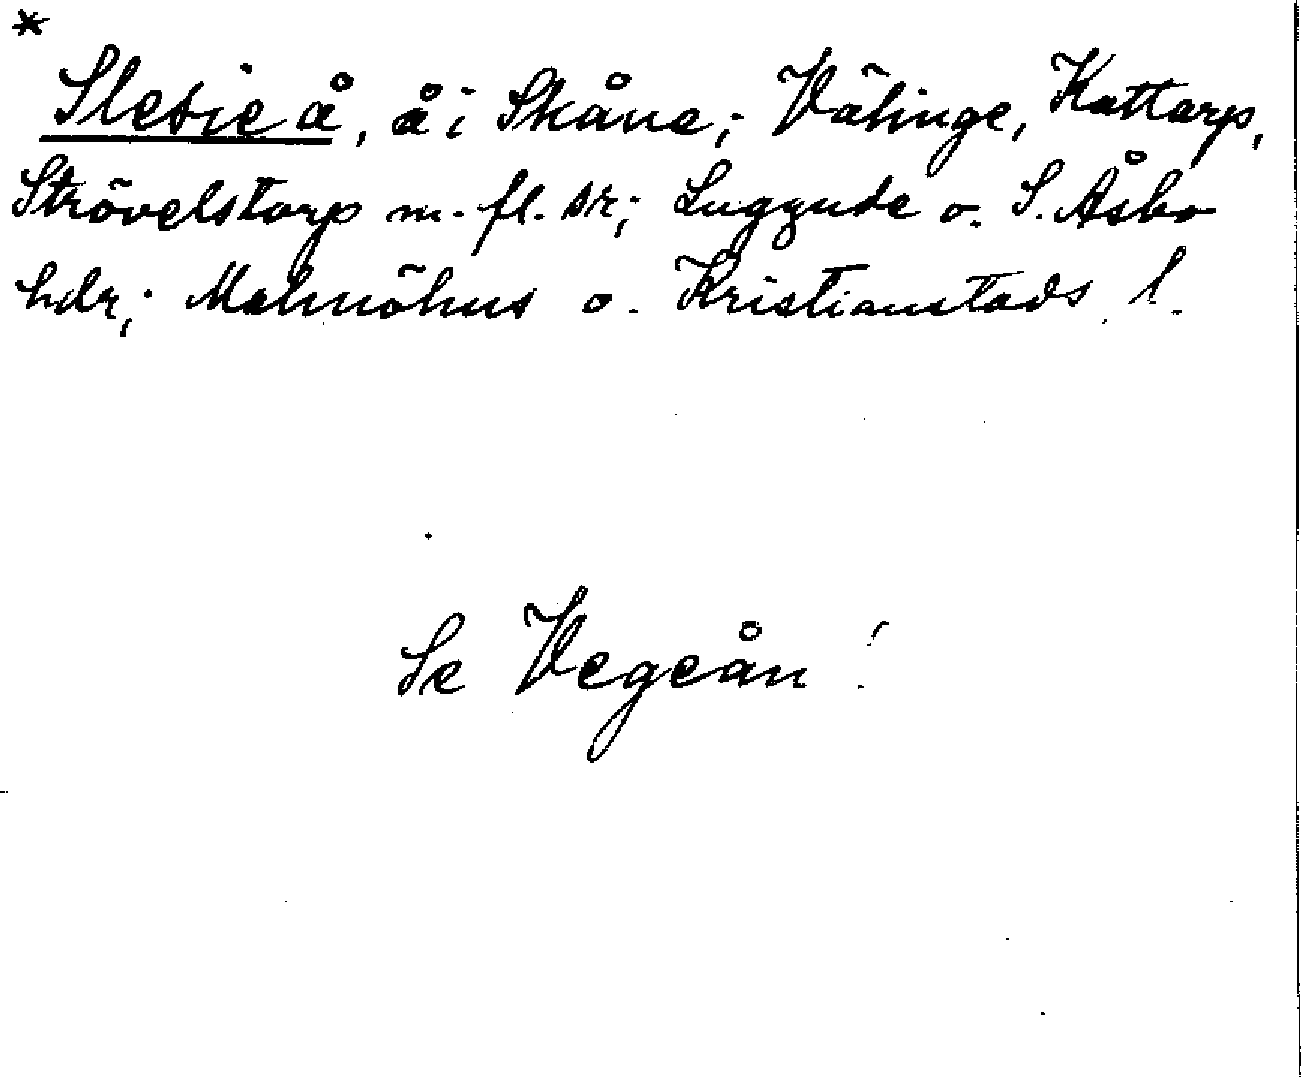 *
Slesie å, å i Skåne; Välinge, Kattarp,
Strövelstorp m. fl. sr; Luggude o. S. Åsbo
hdr; Malmöhus o. Kristianstads l.
Se Vegeån!